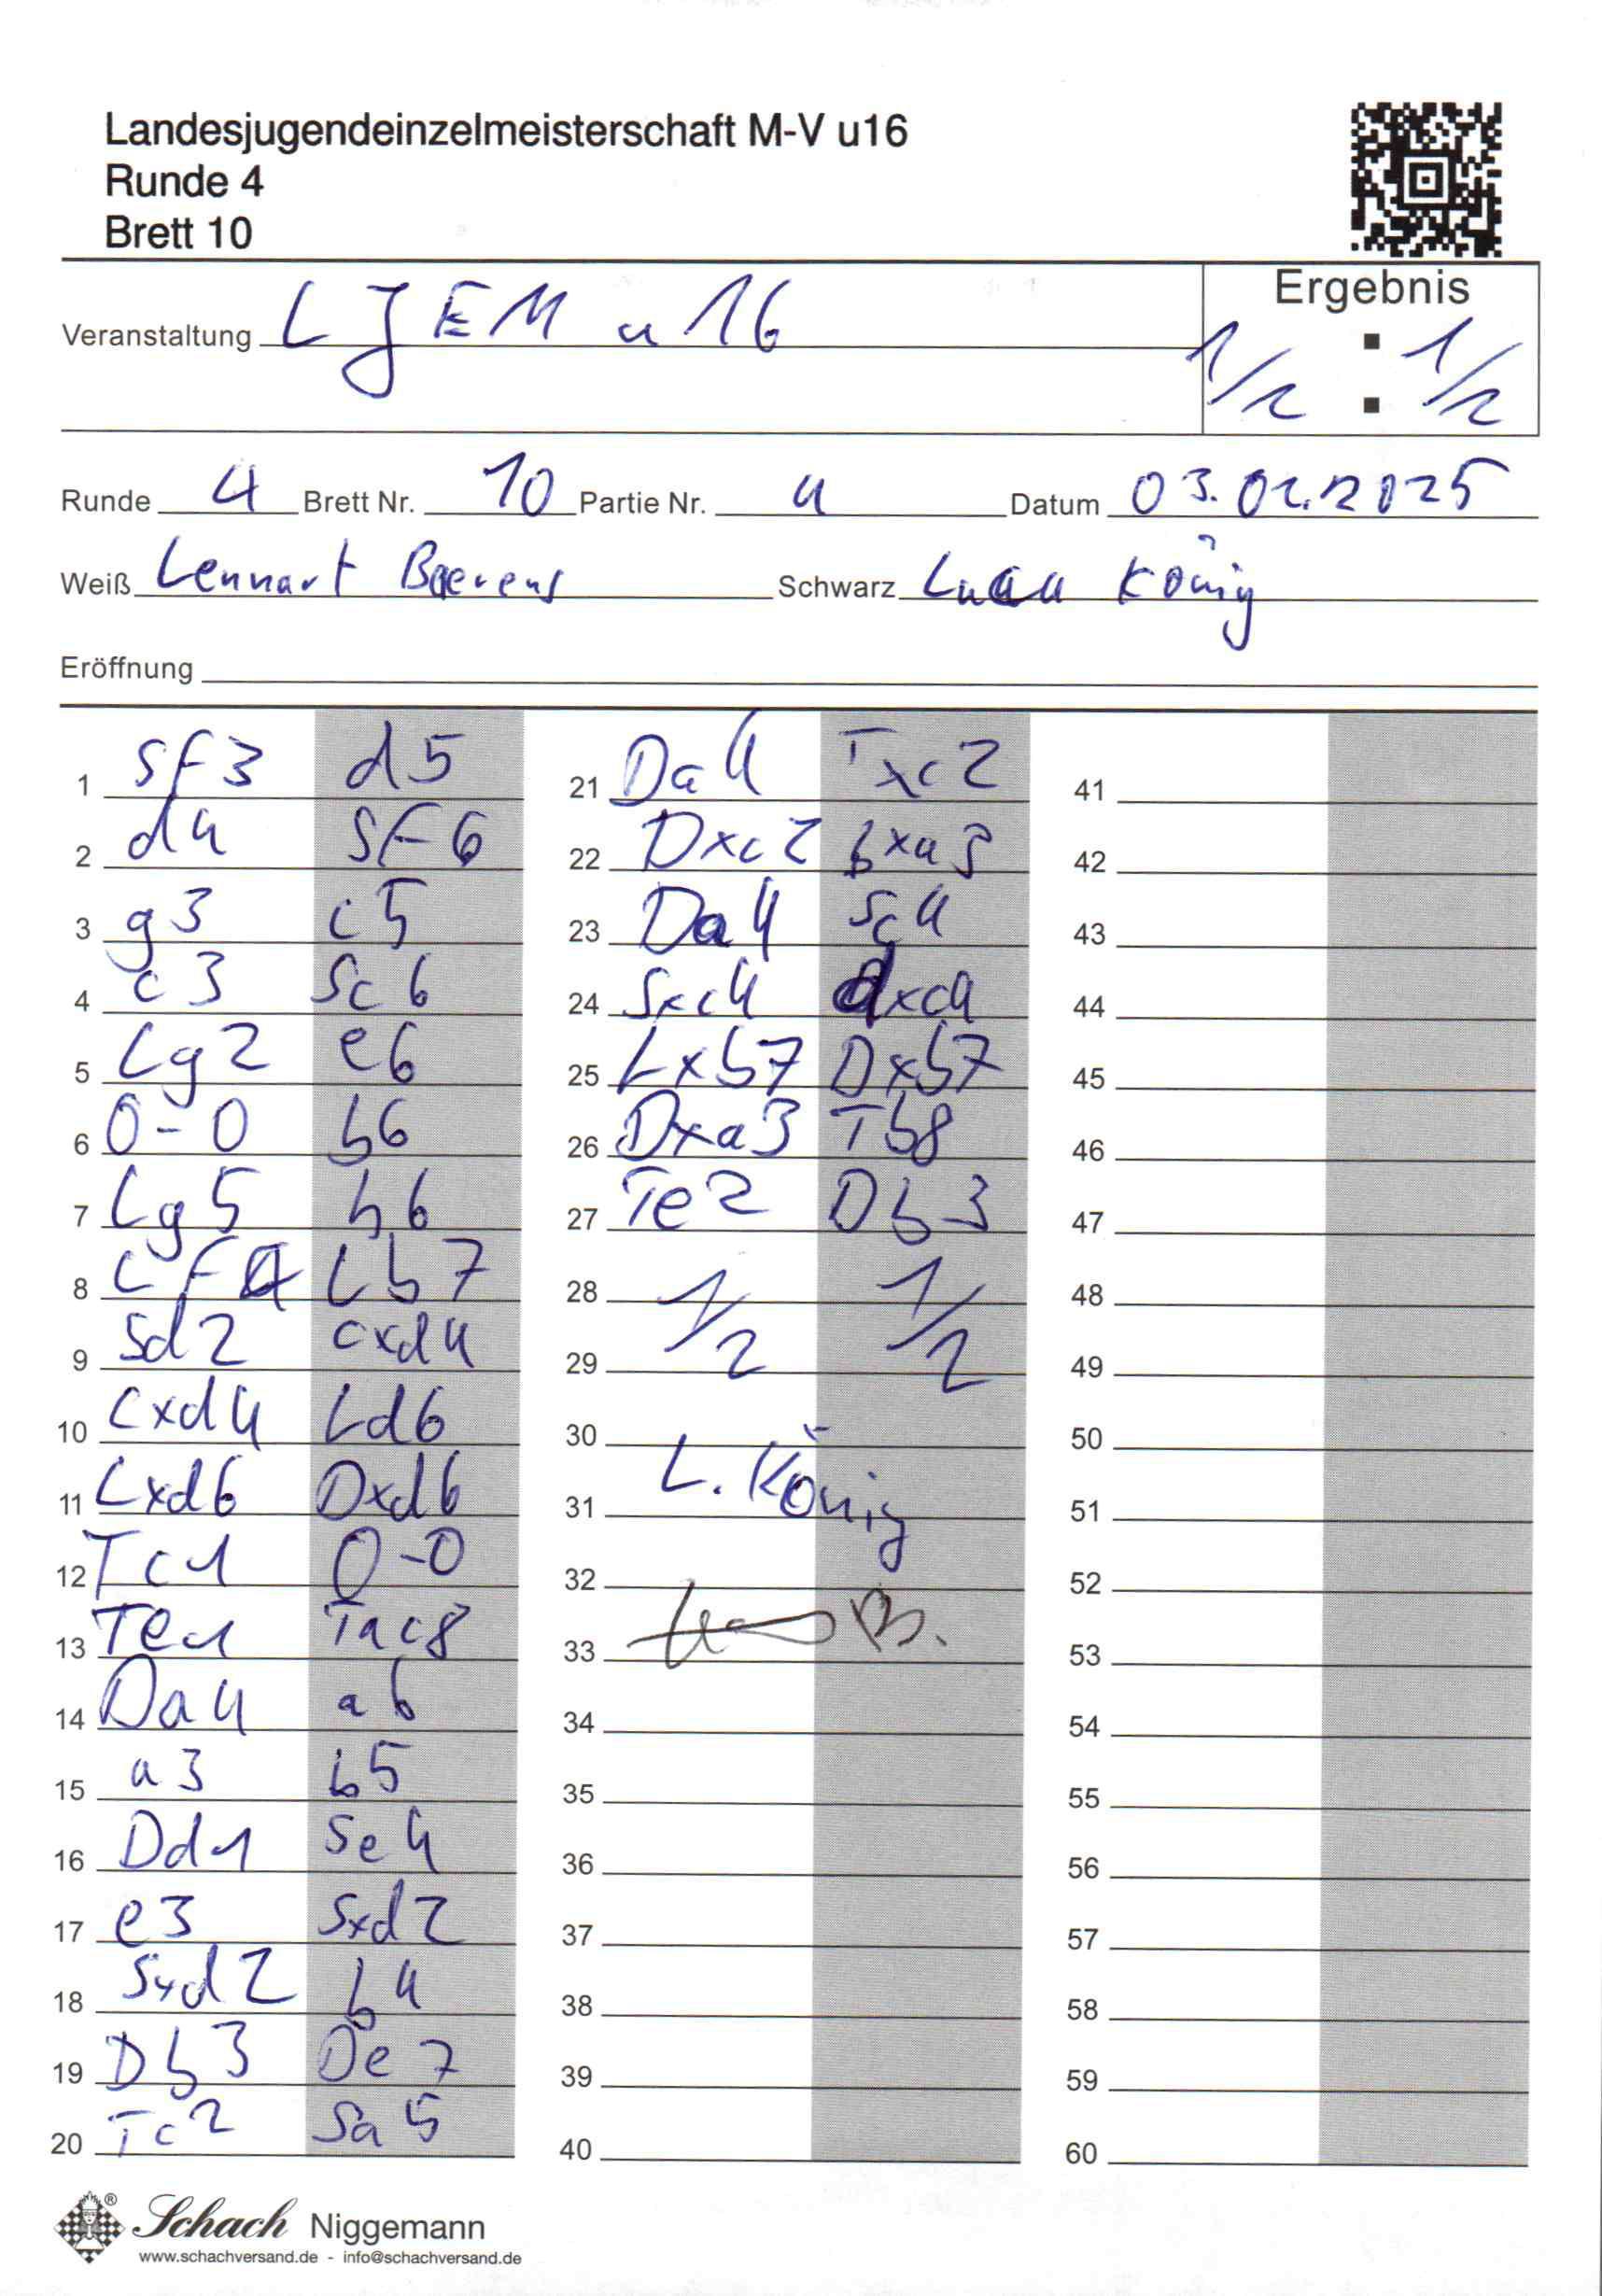 Landesjugendeinzelmeisterschaft M-V u16
Runde 4
Brett 10
Ergebnis
Veranstaltung LJEM u16
1/2 : 1/2
Runde 4 Brett Nr. 10 Partie Nr. 4 Datum 03.02.2025
Weiß Lennart Schwarz König
Eröffnung
1 Sf3 d5
2 d4 Sf6
3 g3 c5
4 c3 Sc6
5 Lg2 e6
6 0-0 b6
7 Lg5 h6
8 Lf4 Lb7
9 Sd2 cxd4
10 cxd4 Ld6
11 Lxd6 Dxd6
12 Tc1 0-0
13 Te1 Tac8
14 Da4 a6
15 a3 b5
16 Dd1 Se4
17 e3 Sxd2
18 Sxd2 b4
19 Db3 De7
20 Tc2 Sa5
21 Da4 Txc2
22 Dxc2 bxa3
23 Da4 Sc4
24 Sxc4 dxc4
25 Lxb7 Dxb7
26 Dxa3 Tb8
27 Te2 Db3
28 1/2 1/2
29
30
31 L. König
32
33 B.
34
35
36
37
38
39
40
41
42
43
44
45
46
47
48
49
50
51
52
53
54
55
56
57
58
59
60
® Schach Niggemann
www.schachversand.de - info@schachversand.de